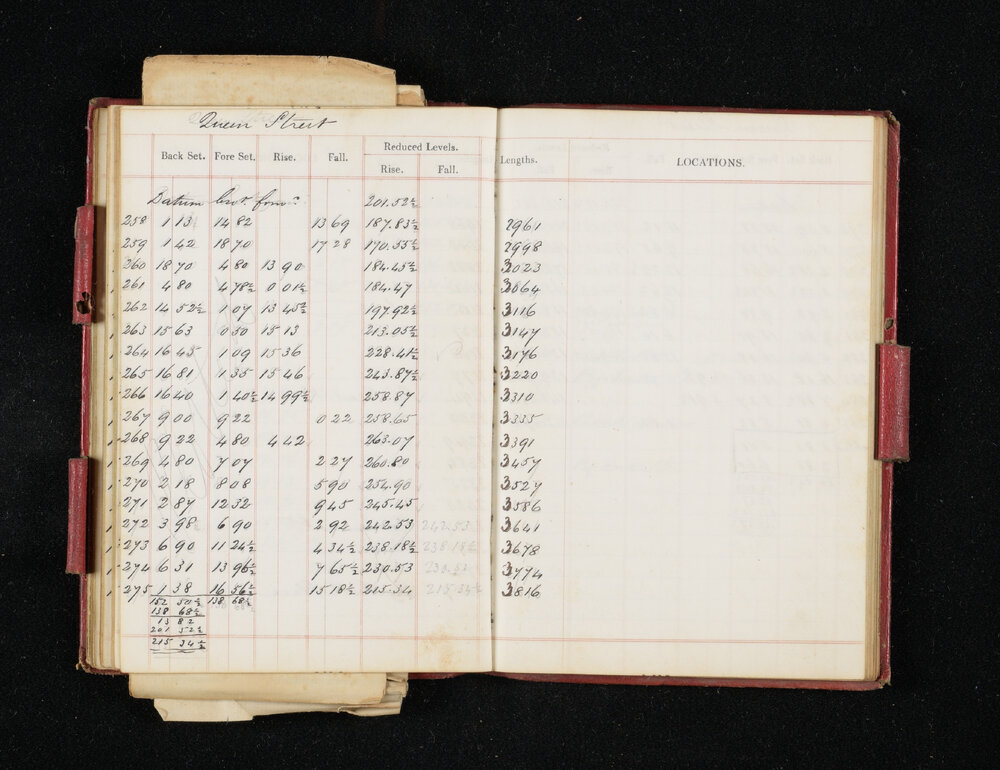 Queen Street
Reduced Levels.
Back Set. Fore Set. Rise. Fall. Rise. Fall. Lengths. LOCATIONS.
Datum 201.52½
258 1 13 14 82 13 69 187.83½ 2961
259 1 42 18 70 17 28 170.55½ 2998
260 18 70 4 80 13 90 184.45½ 3023
261 4 80 4 78½ 0 01½ 184.47 3064
262 14 52½ 1 07 13 45½ 197.92½ 3116
263 15 63 0 50 15 13 213.05½ 3147
264 16 45 1 09 15 36 228.41½ 3176
265 16 81 1 35 15 46 243.87½ 3220
266 16 40 1 40½ 14 99½ 258.87 3310
267 9 00 9 22 0 22 258.65 3335
268 9 22 4 80 4 42 263.07 3391
269 4 80 7 07 2 27 260.80 3457
270 2 18 8 08 5 90 254.90 3527
271 2 87 12 32 9 45 245.45 3586
272 3 98 6 90 2 92 242.53 242.53 3641
273 6 90 11 24½ 4 34½ 238.18½ 238 18½ 3678
274 6 31 13 96½ 7 65½ 230.53 230.53 3774
275 1 38 16 56½ 15 18½ 215.34 215.34½ 3816
152 50½ 138 68½
138 68½
13 82
201 52½
215 34½